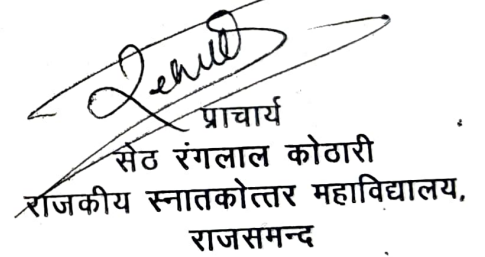 प्राचार्य
सेठ रंगलाल कोठारी
राजकीय स्नातकोत्तर महाविद्यालय,
राजसमन्द